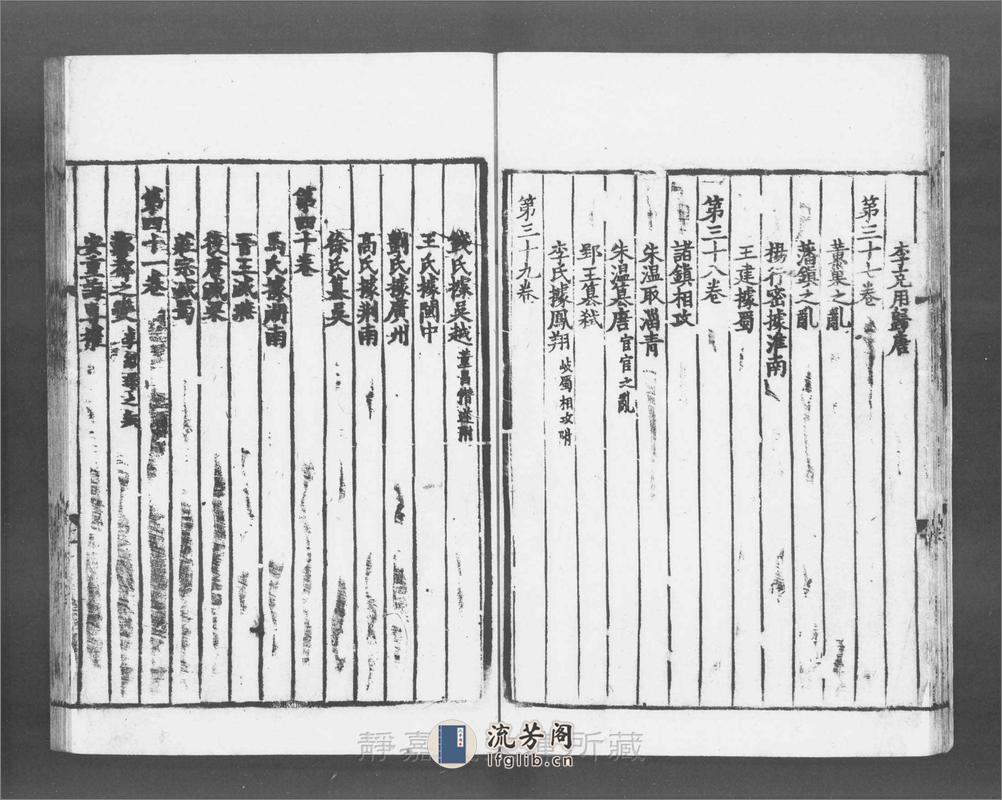 李克用歸唐
第三十七卷
黃巢之亂
藩鎮之亂
楊行密據淮南
王建據蜀
第三十八卷
諸鎮相攻
朱温取淄青
朱温篡唐宦官之亂
郢王篡弒
李氏據鳳翔岐蜀相攻附
第三十九卷
錢氏據吳越董昌僭逆附
王氏據閩中
劉氏據廣州
高氏據荆南
徐氏篡吳
第四十卷
馬氏據湖南
晋王滅燕
後唐滅梁
莊宗滅蜀
第四十一卷
鄴都之變
安重誨專權
静嘉 所藏
流芳阁
lfglib.cn